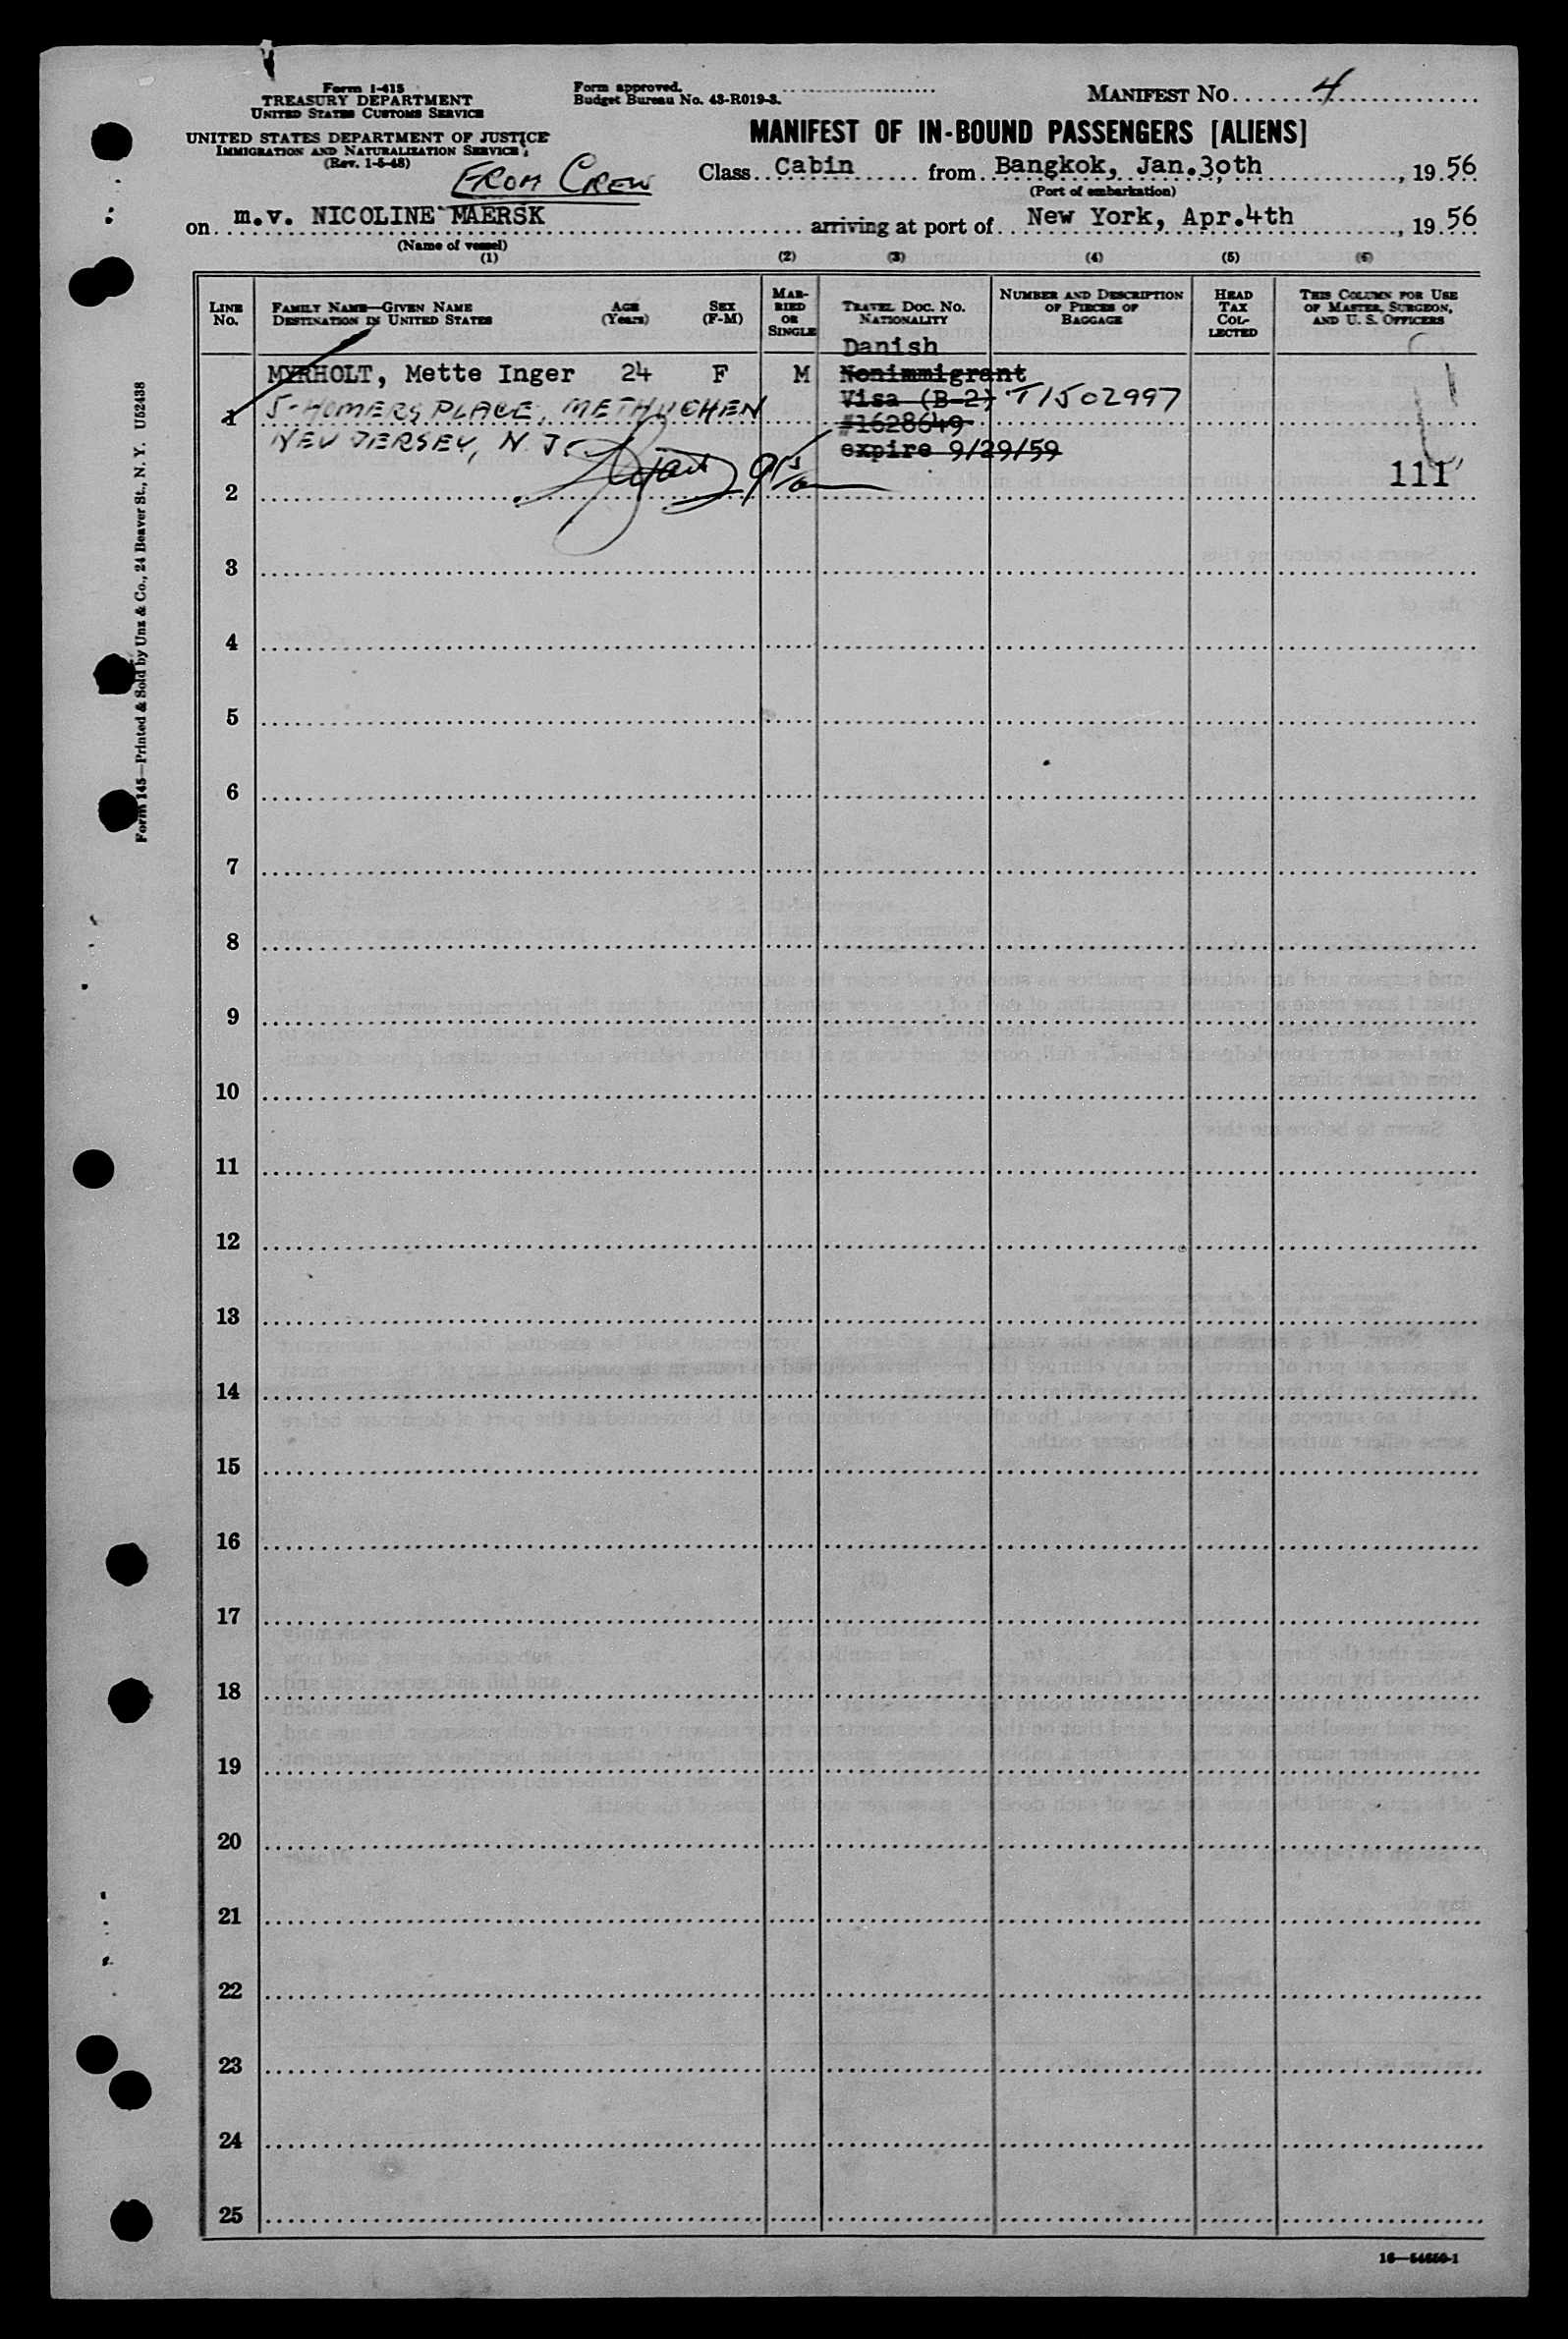 Form I-415
TREASURY DEPARTMENT
UNITED STATES CUSTOMS SERVICE
UNITED STATES DEPARTMENT OF JUSTICE
IMMIGRATION AND NATURALIZATION SERVICE
(Rev. 1-5-48)
Form approved.
Budget Bureau No. 43-R019-3.
MANIFEST NO. 4
MANIFEST OF IN-BOUND PASSENGERS [ALIENS]
FROM CREW
Class Cabin from Bangkok, Jan.30th, 19 56
(Port of embarkation)
on m.v. NICOLINE MAERSK arriving at port of New York, Apr.4th, 19 56
(Name of vessel)
(1) (2) (3) (4) (5) (6)
LINE No.
FAMILY NAME—GIVEN NAME
DESTINATION IN UNITED STATES
AGE (Years)
SEX (F-M)
MAR-RIED OR SINGLE
TRAVEL DOC. NO. NATIONALITY
NUMBER AND DESCRIPTION OF PIECES OF BAGGAGE
HEAD TAX COL-LECTED
THIS COLUMN FOR USE OF MASTER, SURGEON, AND U. S. OFFICERS
Danish
MYRHOLT, Mette Inger 24 F M Nonimmigrant
1 5-HOMERS PLACE, METHUCHEN Visa (B-2) T1502997
#1628649
NEW JERSEY, N.J. expire 9/29/59
111
2
3
4
5
6
7
8
9
10
11
12
13
14
15
16
17
18
19
20
21
22
23
24
25
Form 145—Printed & Sold by Unz & Co., 24 Beaver St., N. Y. U52438
16—54650-1